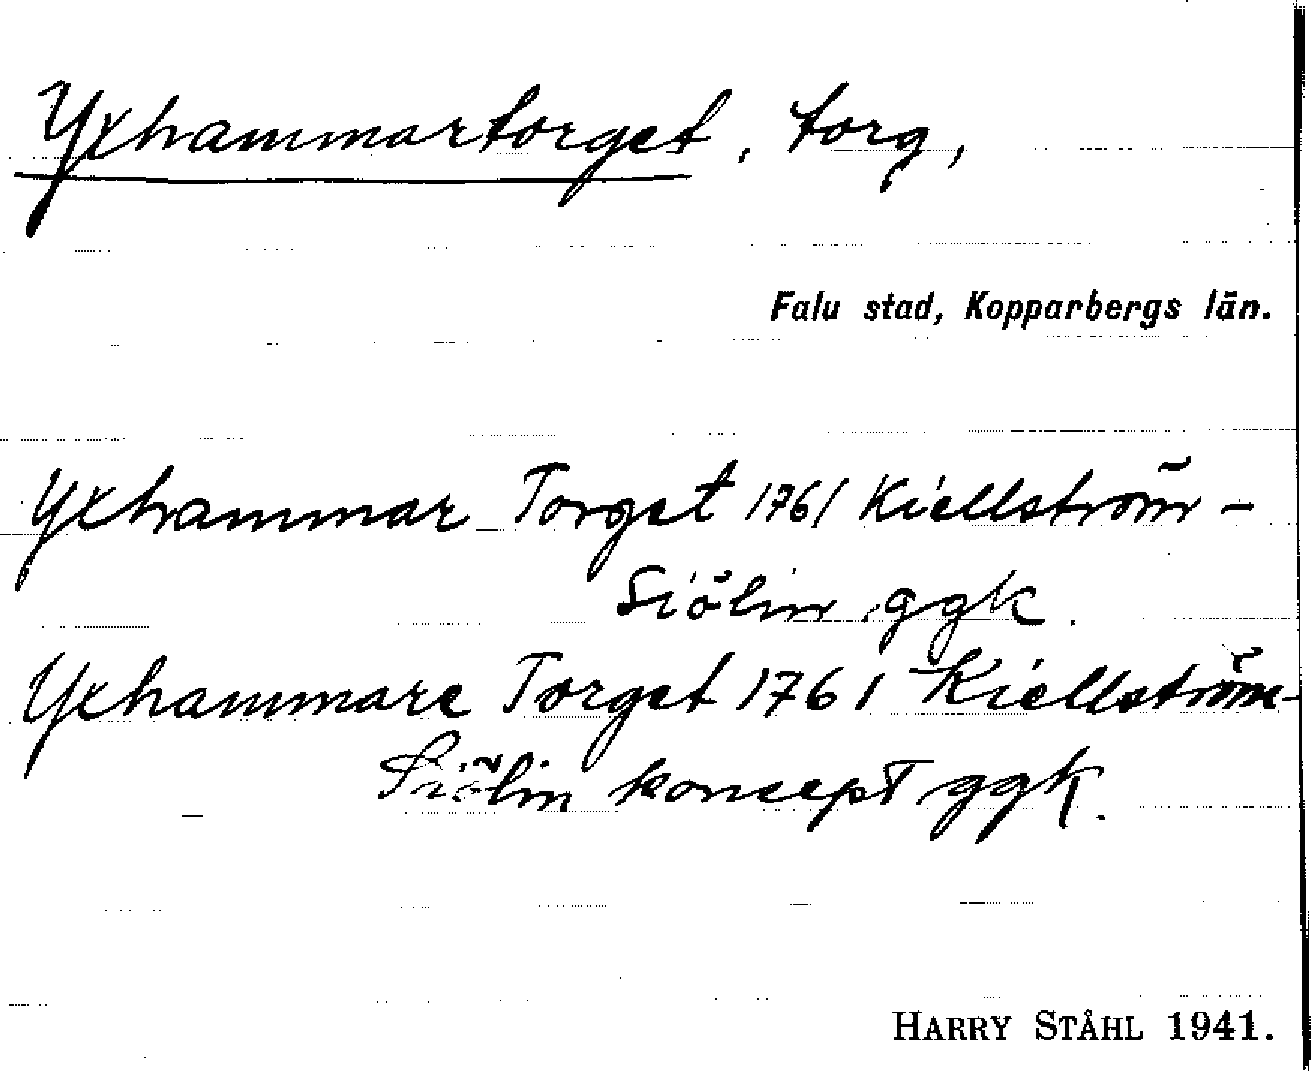 Yxhammartorget, torg,
Falu stad, Kopparbergs län.
Yxhammar Torget 1761 Kiellström-
Siölin ggk.
Yxhammare Torget 1761 Kiellström-
Siölin koncept ggk.
HARRY STÅHL 1941.